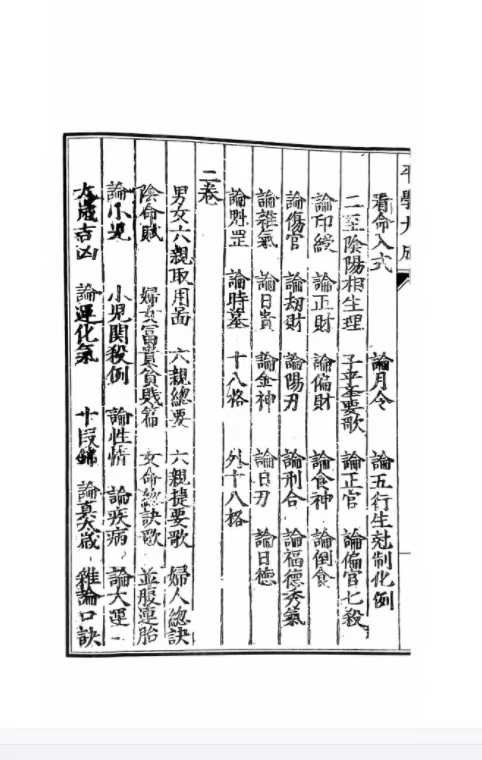 學大成
看命入式　論月令　論五行生尅制化例
二至陰陽相生理　子平举要歌　論正官　論偏官七殺
論印綬　論正財　論偏財　論食神　論倒食
論傷官　論劫財　論陽刃　論刑合　論福德秀氣
論雜氣　論日貴　論金神　論日刃　論日德
論魁罡　論時墓　十八格　外十八格
二卷
男女六親取用啚　六親總要　六親捷要歌　婦人總訣
陰命賦　婦女富貴貧賤篇　女命總訣歌　並腹連胎
論小兒　小児関殺例　論性情　論疾病　論大運
太歲吉凶　論運化氣　十段錦　論真太歲　雜論口訣